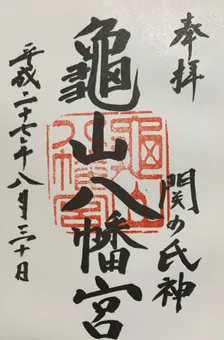 奉拝
関の氏神
龜山八幡宮
平成二十七年八月三十日